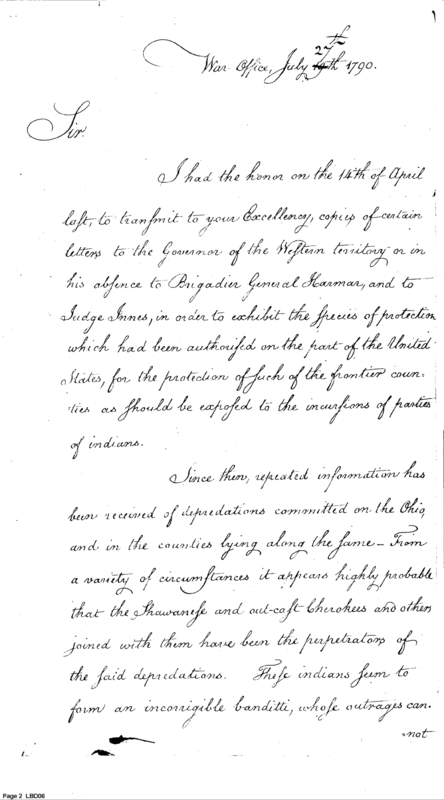 27th
War Office, July 19th 1790.
Sir
I had the honor on the 14th of April
last, to transmit to your Excellency, copies of certain
letters to the Governor of the Western territory or in
his absence to Brigadier General Harmar, and to
Judge Innes, in order to exhibit the species of protection
which had been authorised on the part of the United
States, for the protection of such of the frontier coun-
ties as should be exposed to the incursions of parties
of indians.
Since then, repeated information has
been received of depredations committed on the Ohio,
and in the counties lying along the same – From
a variety of circumstances it appears highly probable
that the Shawanese and out-cast Cherokees and others
joined with them have been the perpetrators of
the said depredations. These indians seem to
form an incorrigible banditti, whose outrages can-
-not
Page 2 LBD06